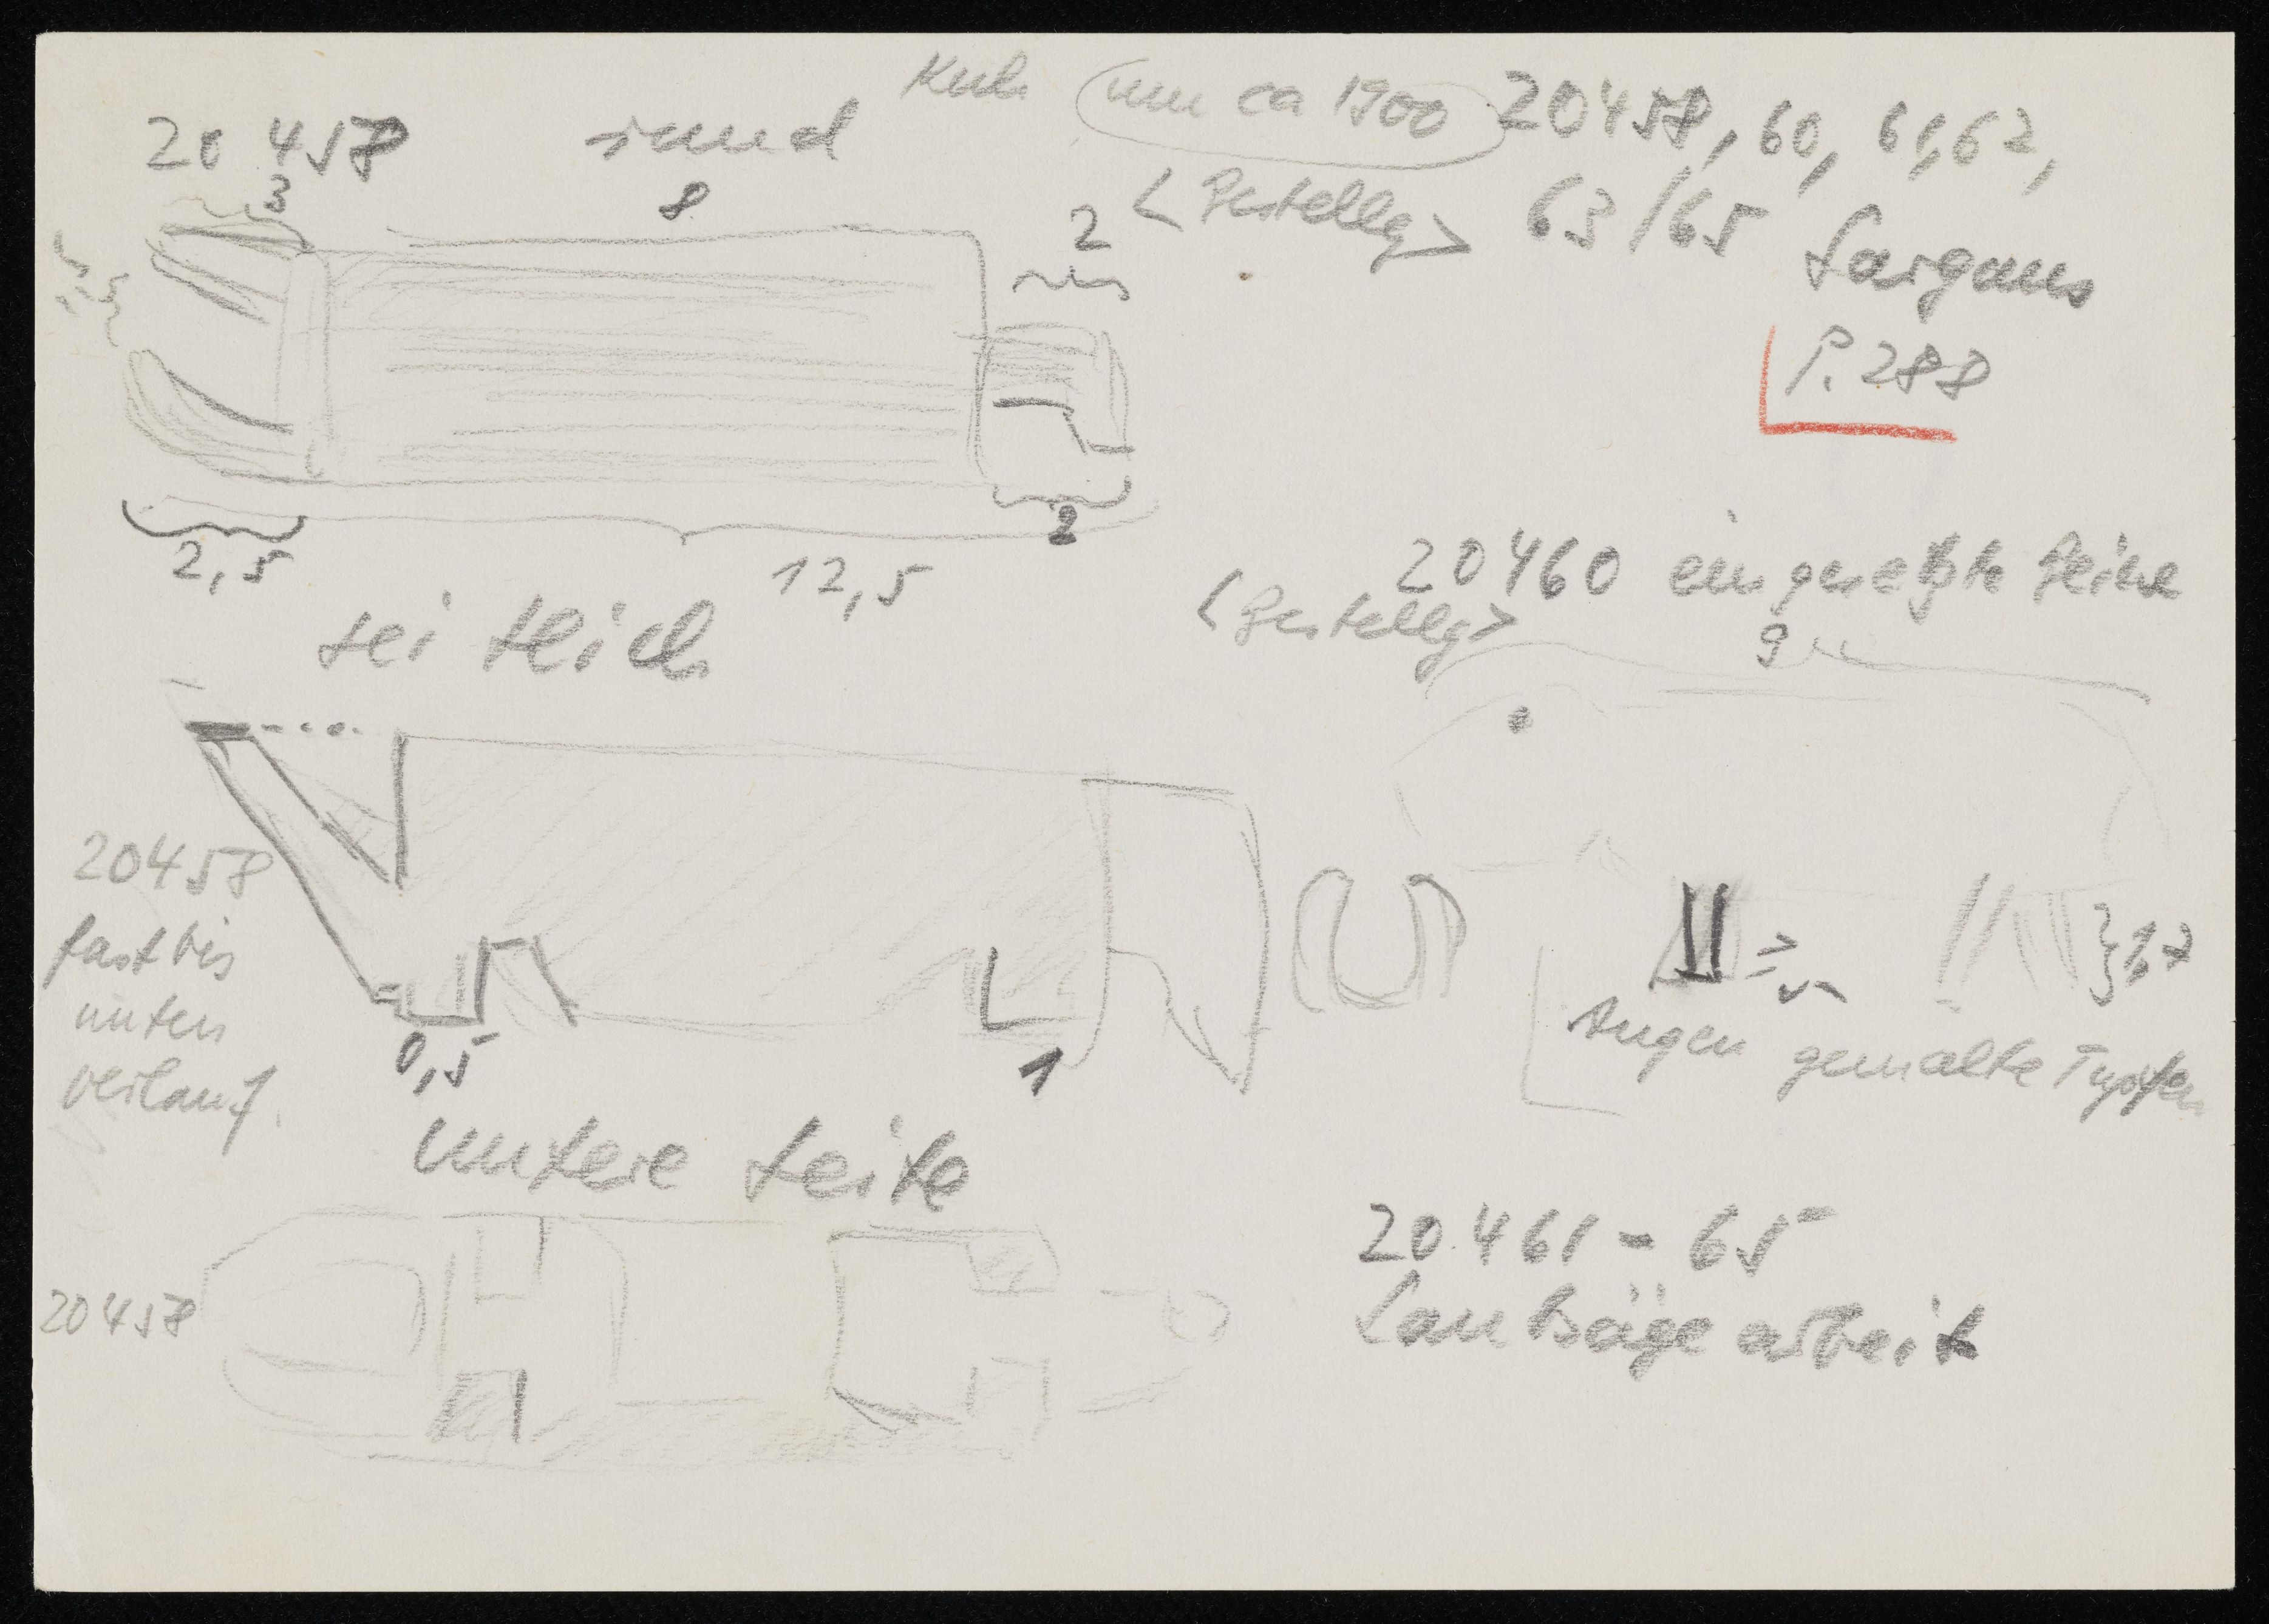 Kuh um ca 1900 20458, 60, 61, 62,
<Bestellg> 63/65 Sargans
P. 288
20 458 rund
3
8
2
2
2,5
12,5
seitlich
20460 eingesetzte Beine
<Bestellg>
9
20458
fast bis
unten
verlauf.
0,5
1
1,7
Augen gemalte Tupfen
untere Seite
20458
20461 - 65
Laubsägearbeit